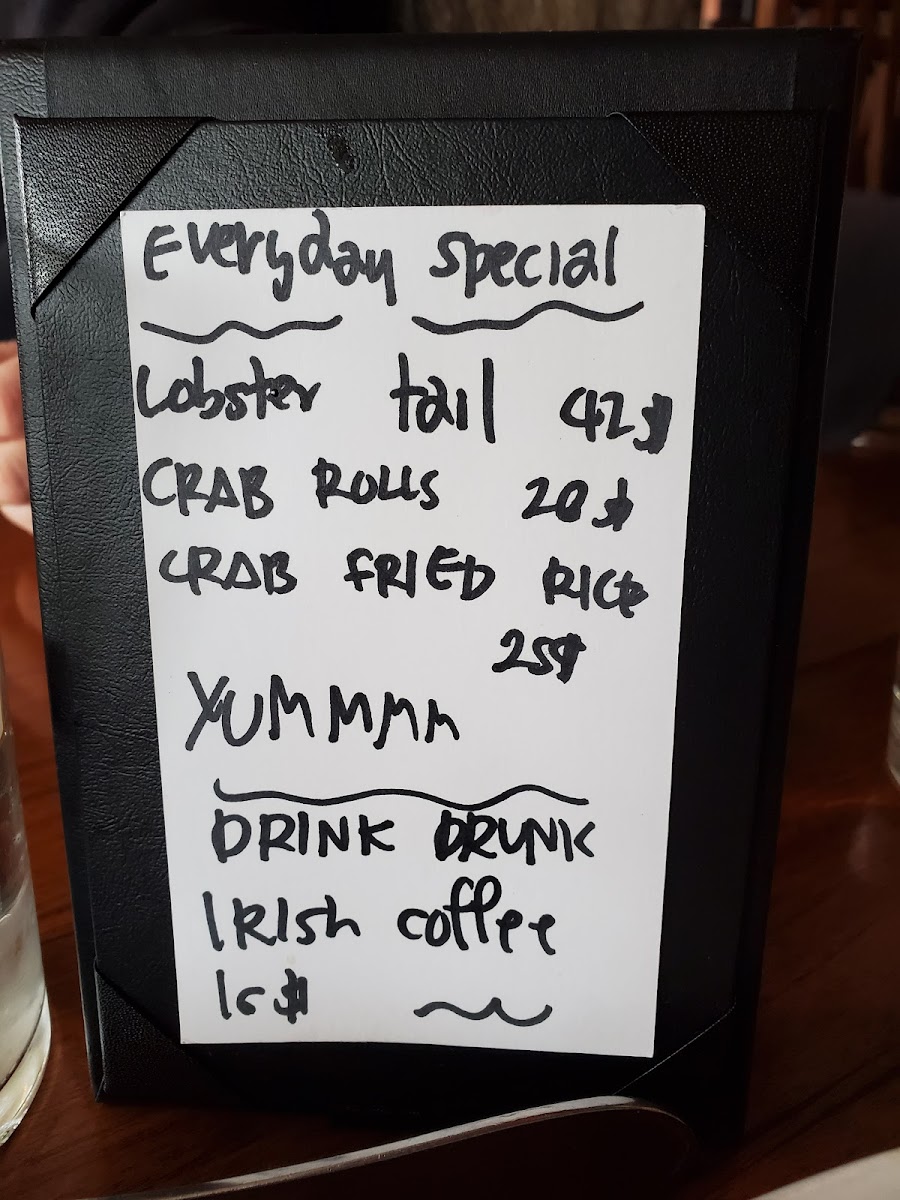 Everyday special
Lobster tail 42$
CRAB ROLLS 20$
CRAB FRIED RICE
25$
YUMMMM
DRINK DRUNK
IRISh coffee